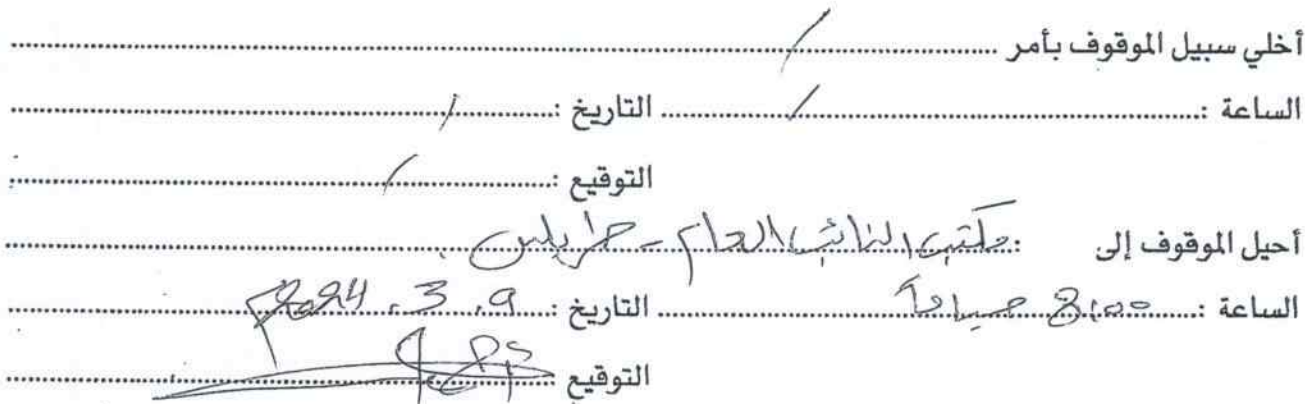 أخلي سبيل الموقوف بأمر ........ /
الساعة : ........ / ........ التاريخ : ........ /
التوقيع : ........ /
أحيل الموقوف إلى : مكتب النائب العام - طرابلس
الساعة : 8:00 صباحاً التاريخ : 9 . 3 . 2024م
التوقيع